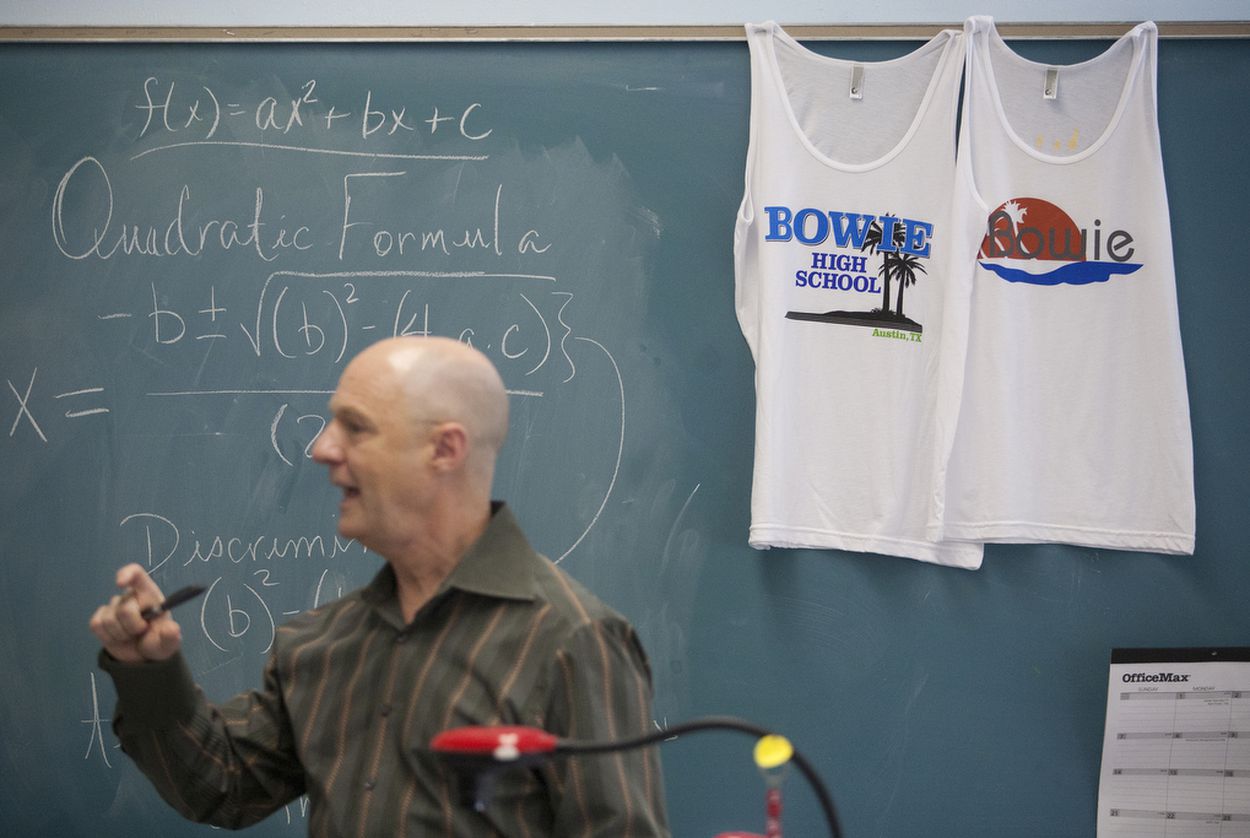 f(x) = ax² + bx + c
Quadratic Formula
x = -b ± √(b)² - (4·a·c)
(2
Discrimi
(b)² - (
BOWIE
HIGH
SCHOOL
Austin, TX
Bowie
OfficeMax
SUNDAY MONDAY